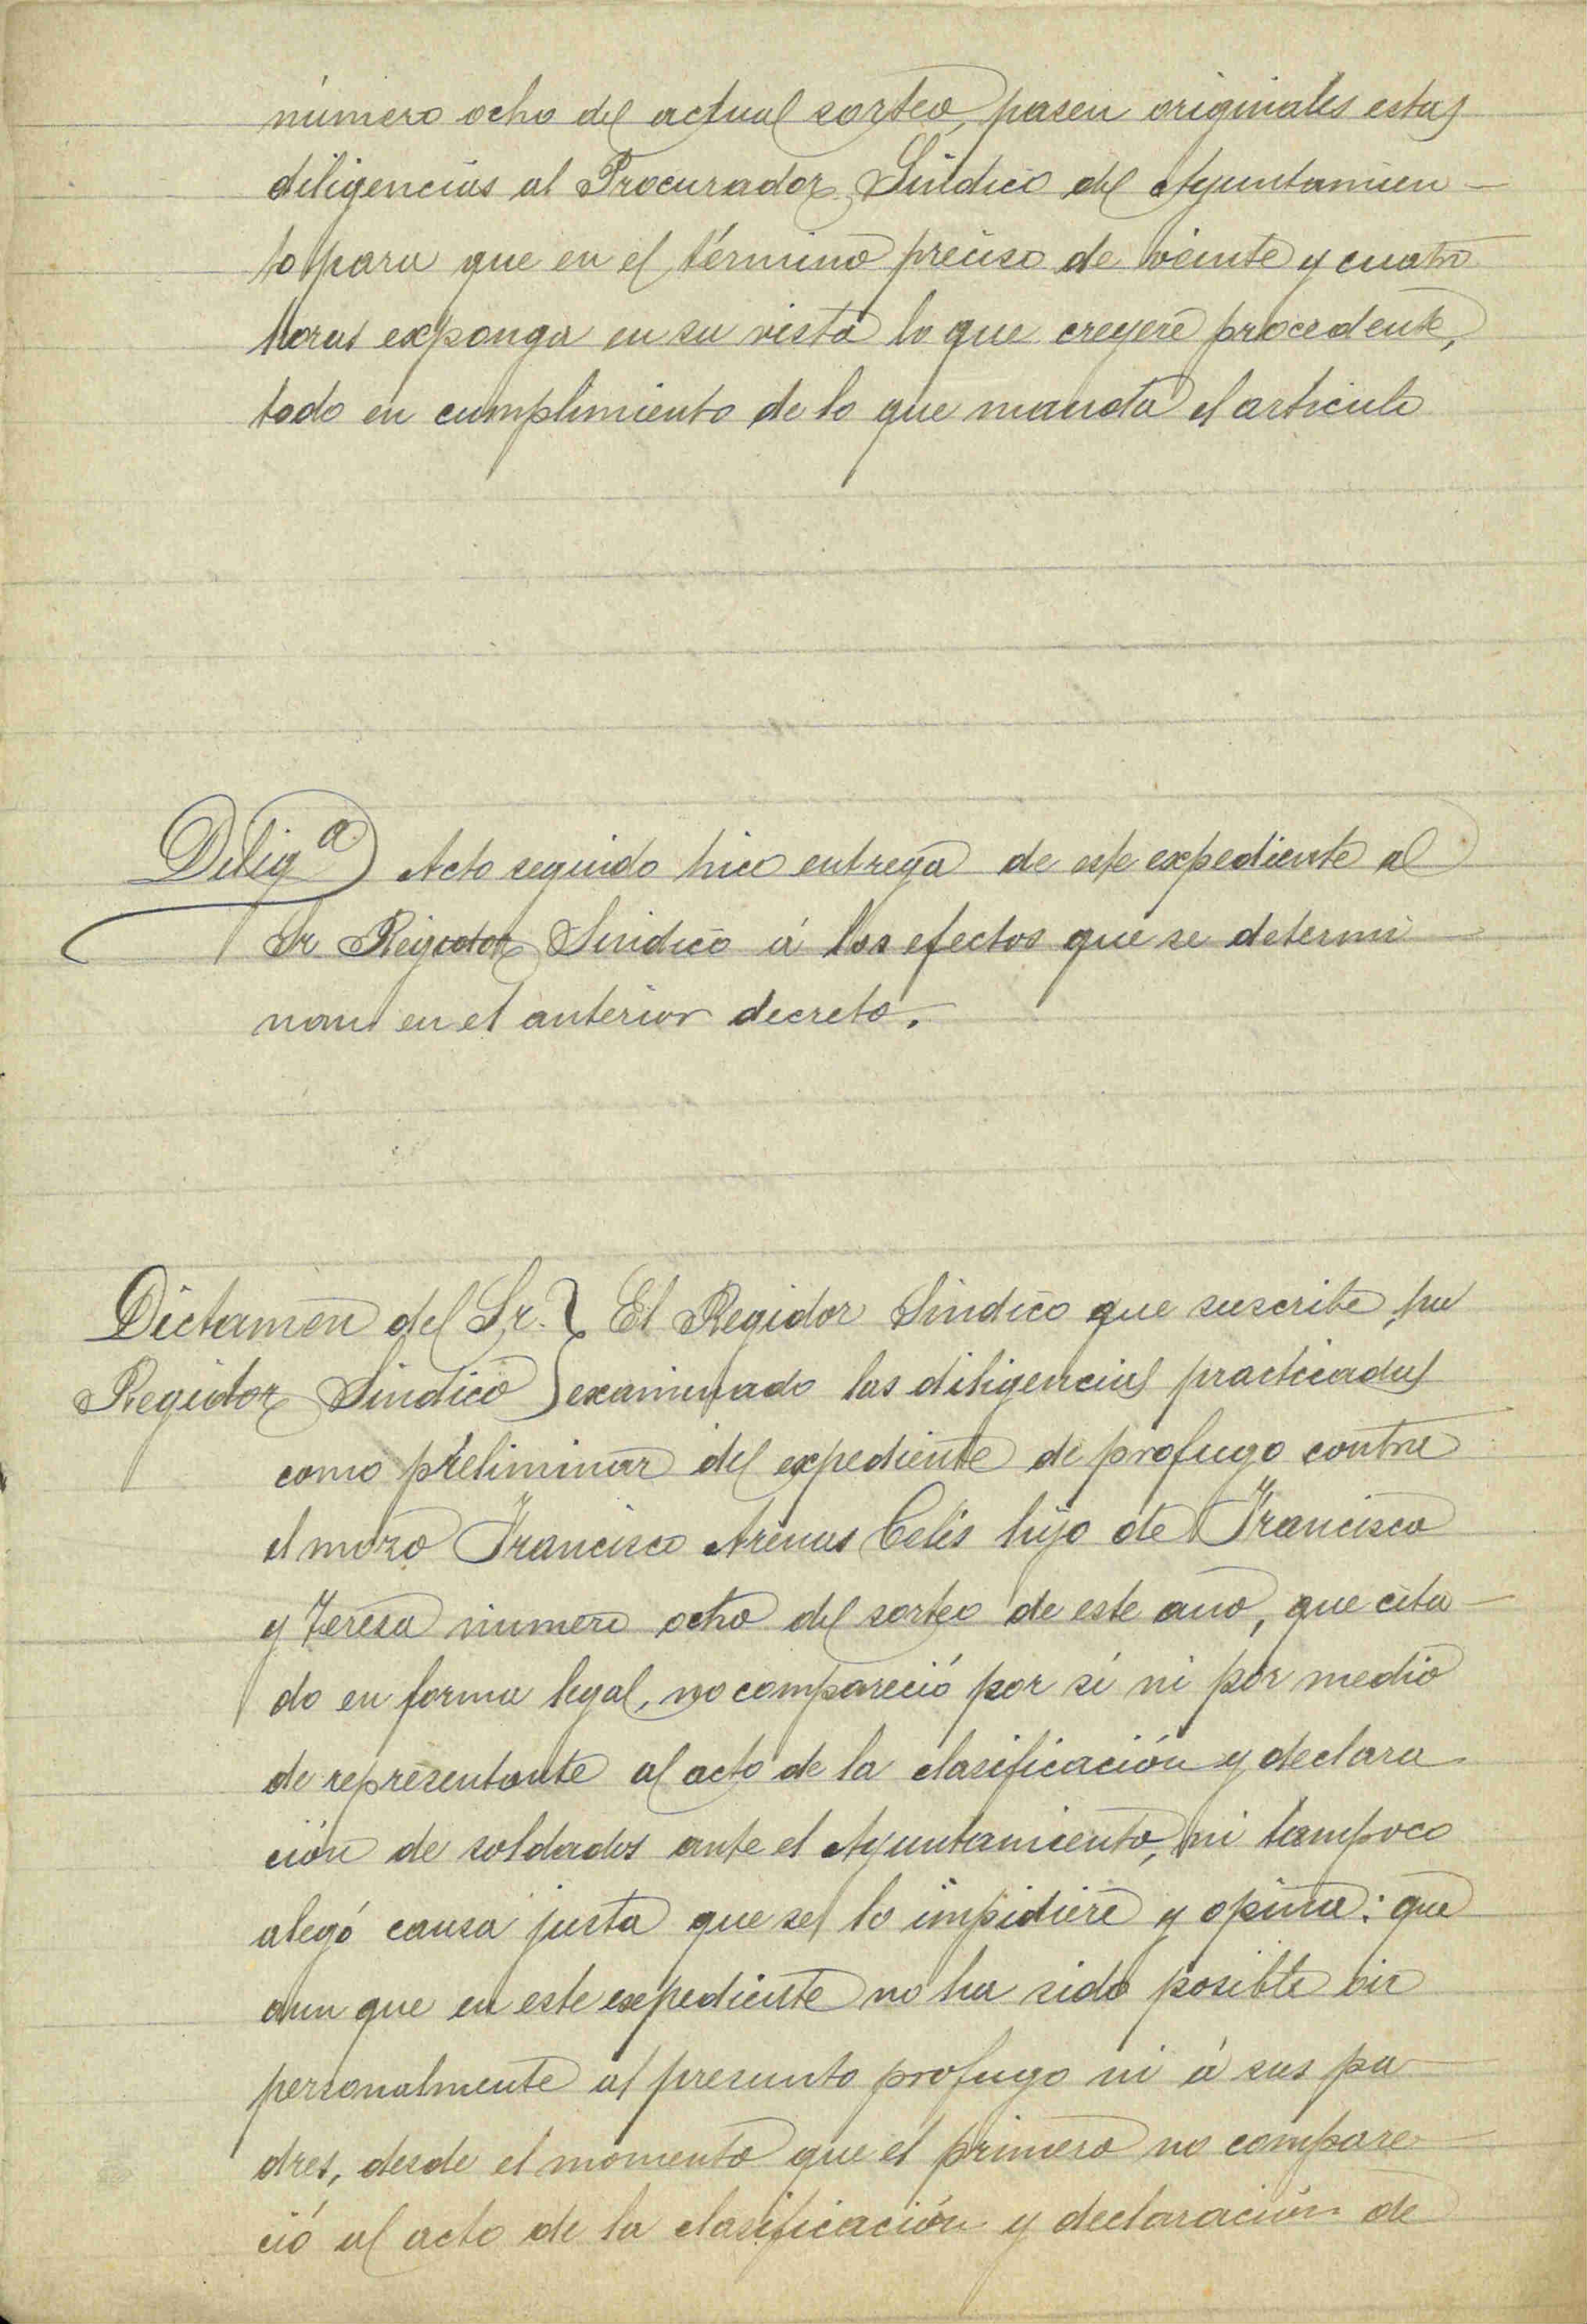 número ocho del actual sorteo, pasen originales estas
diligencias al Procurador Síndico del Ayuntamien-
to para que en el término preciso de veinte y cuatro
horas exponga en su vista lo que creyere procedente,
todo en cumplimiento de lo que manda el articulo
Diligª Acto seguido hice entrega de este expediente al
Sr Regidor Sindico á los efectos que se determi-
nan en el anterior decreto.
Dictamen del Sr. } El Regidor Sindico que suscribe, ha
Regidor Sindico } examinado las diligencias practicadas
como preliminar del expediente de profugo contra
el mozo Francisco Arenas Celis hijo de Francisco
y Teresa numero ocho del sorteo de este año, que cita-
do en forma legal, no compareció por sí ni por medio
de representante al acto de la clasificación y declara-
ción de soldados ante el Ayuntamiento, ni tampoco
alegó causa justa que se lo impidiere y opina: que
aun que en este expediente no ha sido posible oir
personalmente al presunto profugo ni á sus pa-
dres, desde el momento que el primero no compare-
ció al acto de la clasificación y declaración de